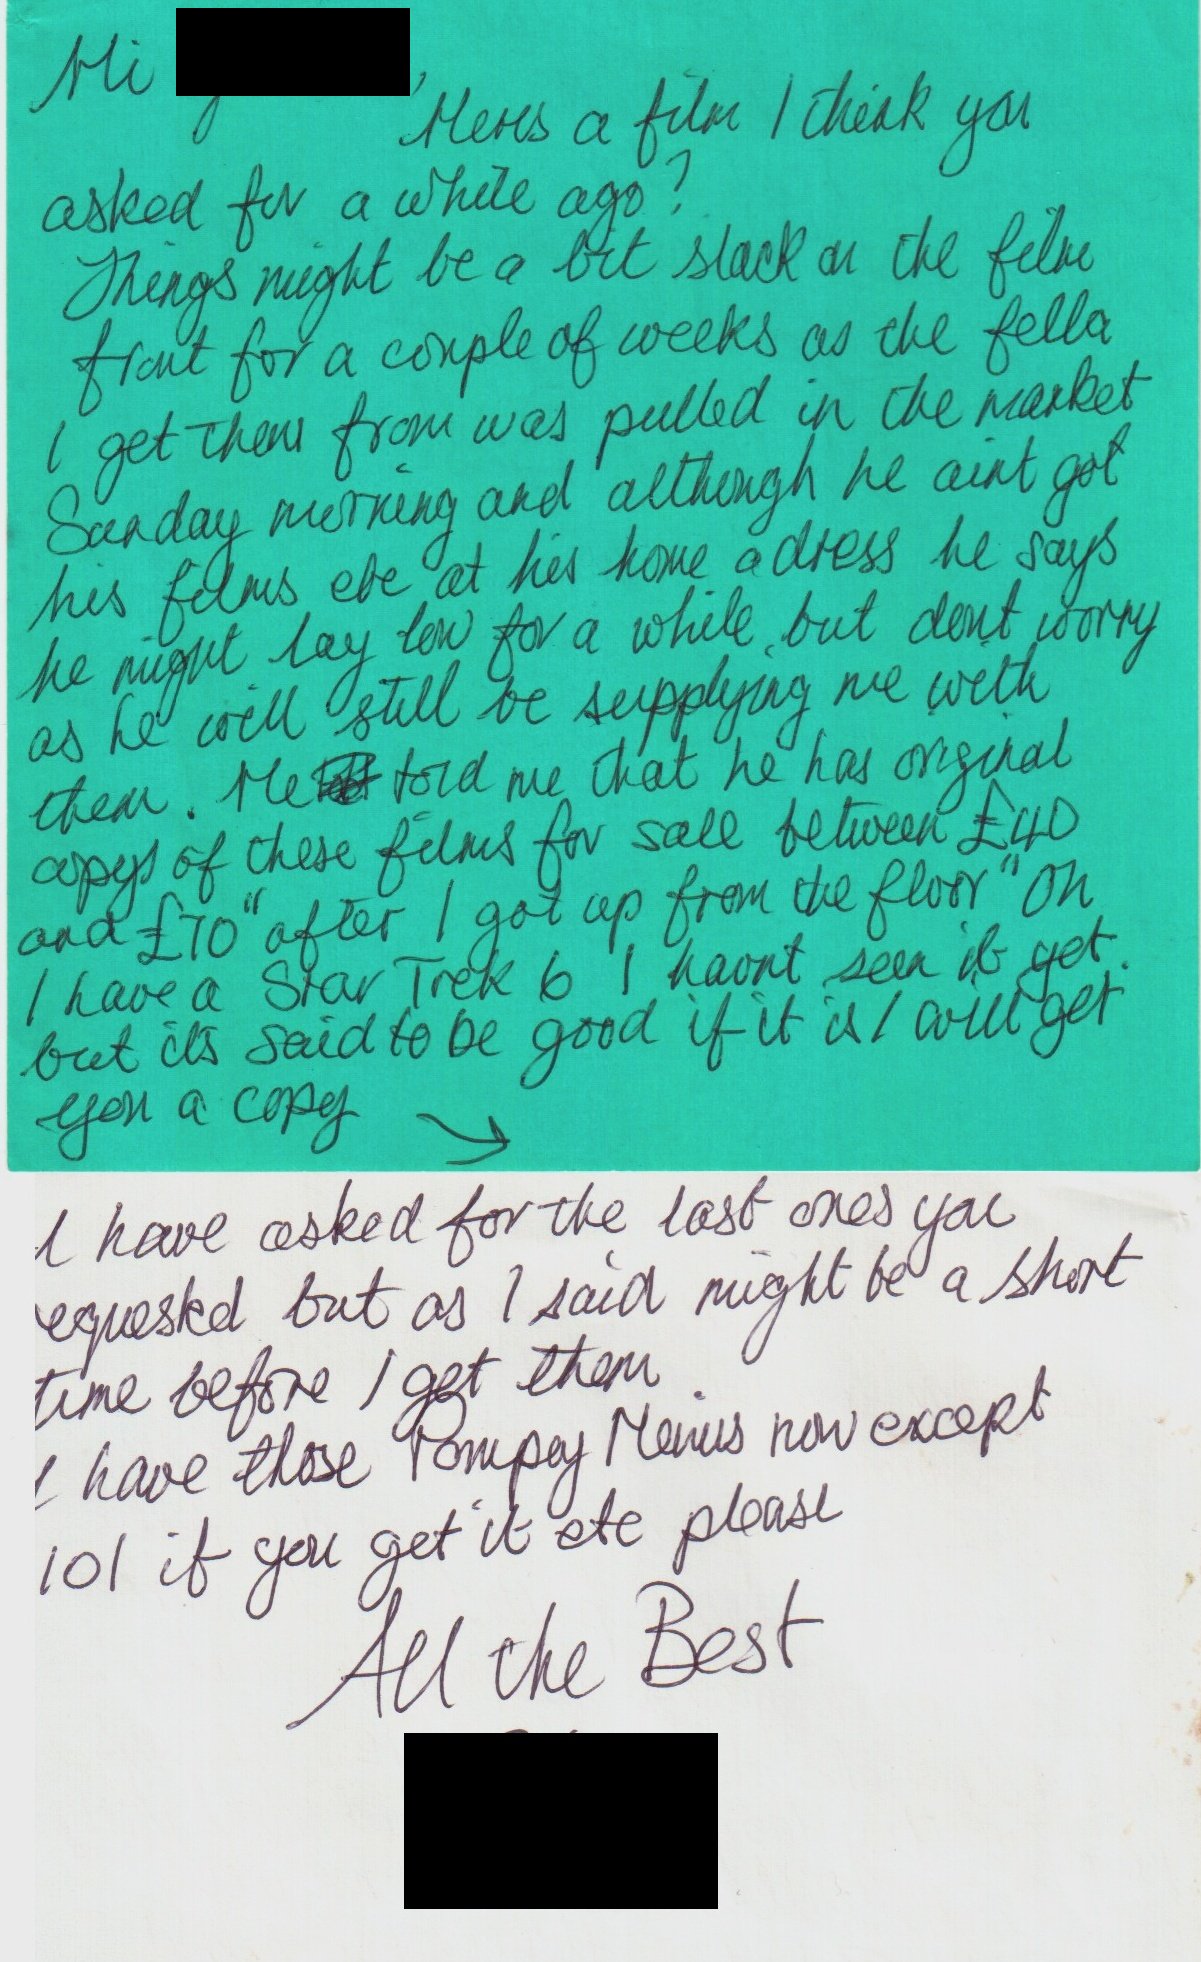 Hi ,
Heres a film I think you
asked for a while ago?
Things might be a bit slack on the film
front for a couple of weeks as the fella
I get them from was pulled in the market
Sunday morning and although he aint got
his films etc at his home adress he says
he might lay low for a while, but dont worry
as he will still be supplying me with
them. He told me that he has original
copys of these films for sale between £40
and £70 "after I got up from the floor" Oh
I have a Star Trek 6 I havnt seen it yet
but its said to be good if it is I will get
you a copy →
I have asked for the last ones you
requested but as I said might be a short
time before I get them.
I have those Pompey Menus now except
101 if you get it etc please
All the Best